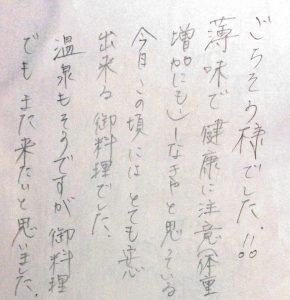 ごちそう様でした.!!
薄味で健康に注意(体重
増加にも)しなきゃと思っている
今日この頃には とても安心
出来る御料理でした.
温泉もそうですが御料理
でもまた来たいと思いました.